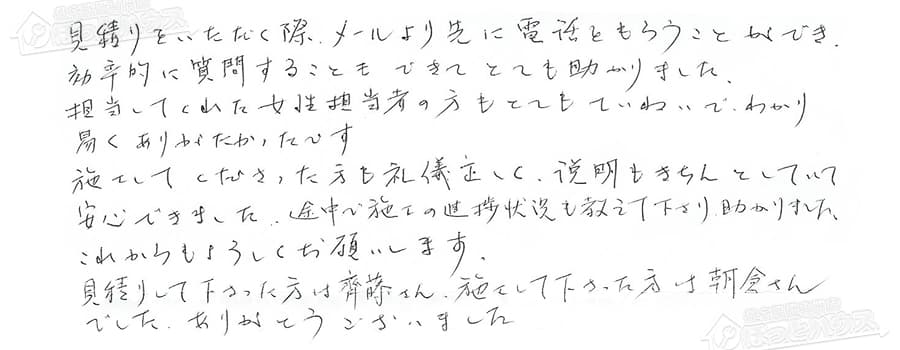 見積りをいただく際、メールより先に電話ともらうことができ、
効率的に質問することもできてとても助かりました。
担当してくれた女性担当者の方もとてもていねいで、わかり
易くありがたかったです
施工してくださった方も礼儀正しく、説明もきちんとしていて
安心できました。途中で施工の進捗状況も教えて下さり、助かりました。
これからもよろしくお願いします。
見積りして下さった方は齊藤さん、施工して下さった方は朝倉さん
でした。ありがとうございました